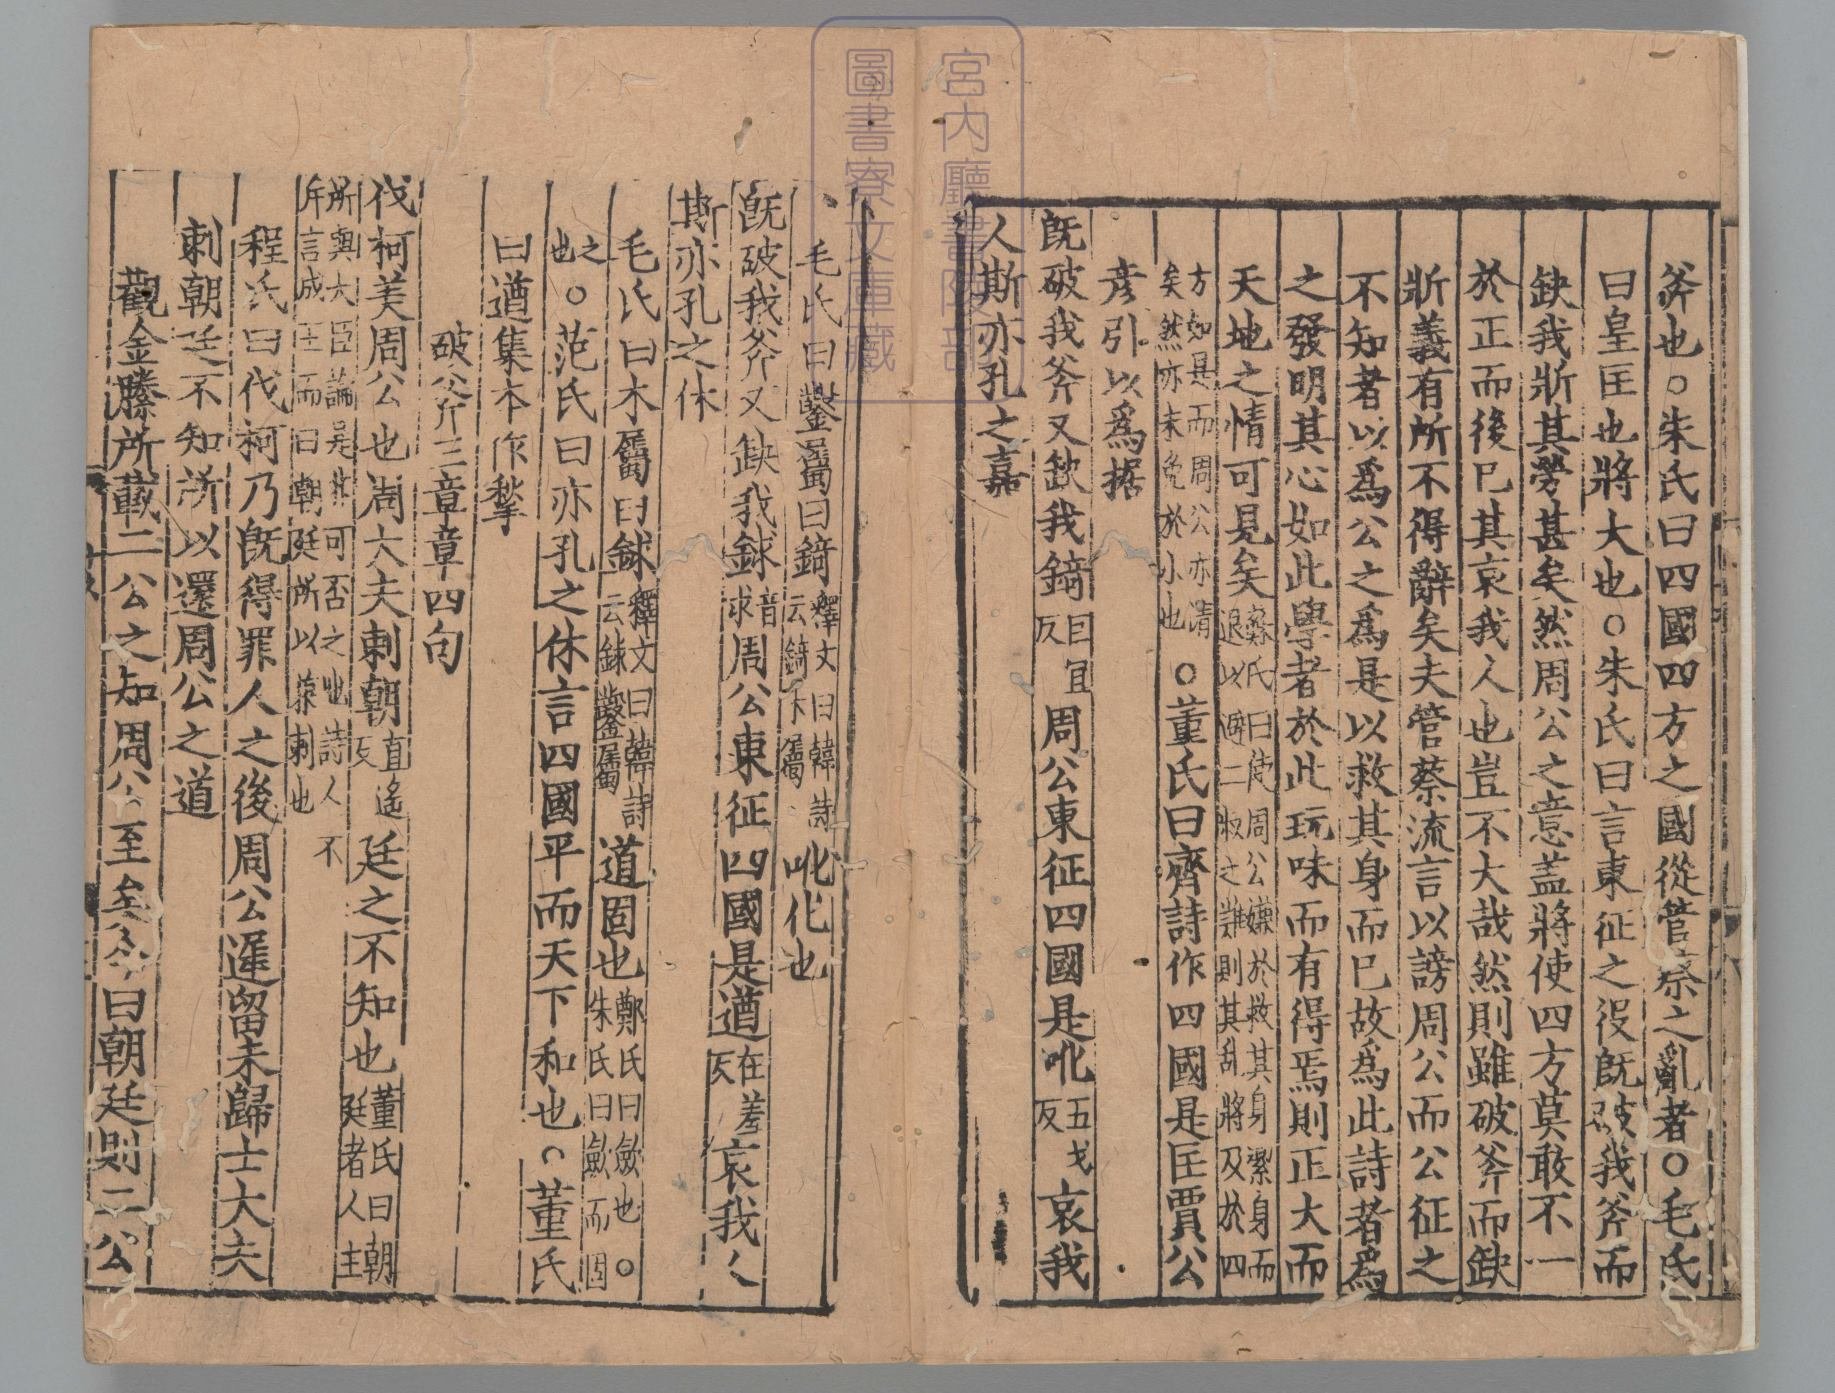 斧也○朱氏曰四國四方之國從管蔡之亂者○毛氏
曰皇匡也將大也○朱氏曰言東征之役旣破我斧而
缺我斨其勞甚矣然周公之意蓋將使四方莫敢不一
於正而後已其哀我人也豈不大哉然則雖破斧而缺
斨義有所不得辭矣夫管蔡流言以謗周公而公征之
不知者以爲公之爲是以救其身而已故爲此詩者爲
之發明其心如此學者於此玩味而有得焉則正大而
天地之情可見矣蘇氏曰使周公嫌於救其身潔身而退以避二叔之難則其乱將及於四
方如是而周公亦清矣然亦未免於小也○董氏曰齊詩作四國是匡賈公
彦引以爲据
旣破我斧又缺我錡巨宜反周公東征四國是吪五戈反哀我
人斯亦孔之嘉
毛氏曰鑿屬曰錡釋文曰韓詩云錡木屬吪化也
旣破我斧又缺我銶音求周公東征四國是遒在羞反哀我人
斯亦孔之休
毛氏曰木屬曰銶釋文曰韓詩云銶鑿屬遒固也鄭氏曰斂也○朱氏曰斂而固
之也○范氏曰亦孔之休言四國平而天下和也○董氏
曰遒集本作揫
破斧三章章四句
伐柯美周公也周大夫刺朝直遙反廷之不知也董氏曰朝廷者人主
所與大臣論是非可否之地詩人不斥言成王而曰朝廷所以深刺也
程氏曰伐柯乃旣得罪人之後周公遲留未歸士大夫
刺朝廷不知所以還周公之道
觀金縢所載二公之知周公至矣今曰朝廷則二公
宮内廳書陵部
圖書寮文庫藏